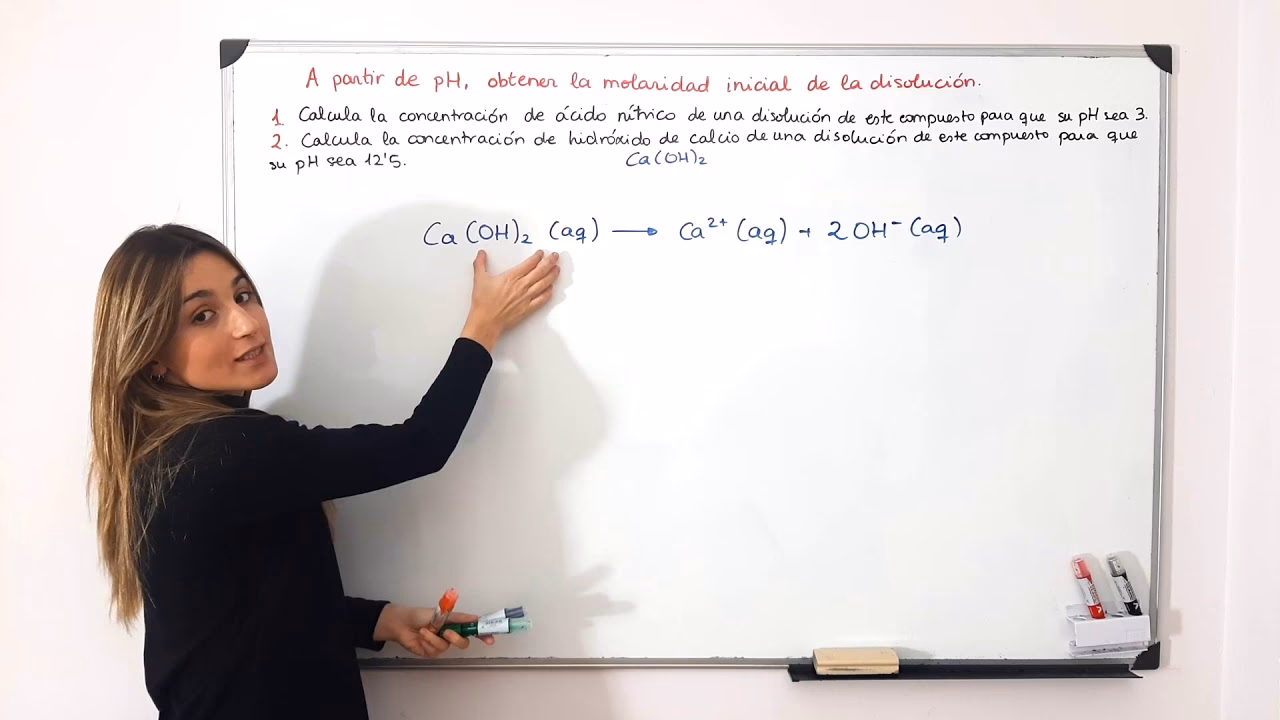 A partir de pH, obtener la molaridad inicial de la disolución.
1. Calcula la concentración de ácido nítrico de una disolución de este compuesto para que su pH sea 3.
2. Calcula la concentración de hidróxido de calcio de una disolución de este compuesto para que
su pH sea 12'5.
Ca(OH)₂
Ca(OH)₂ (aq) ⟶ Ca²⁺(aq) + 2OH⁻(aq)